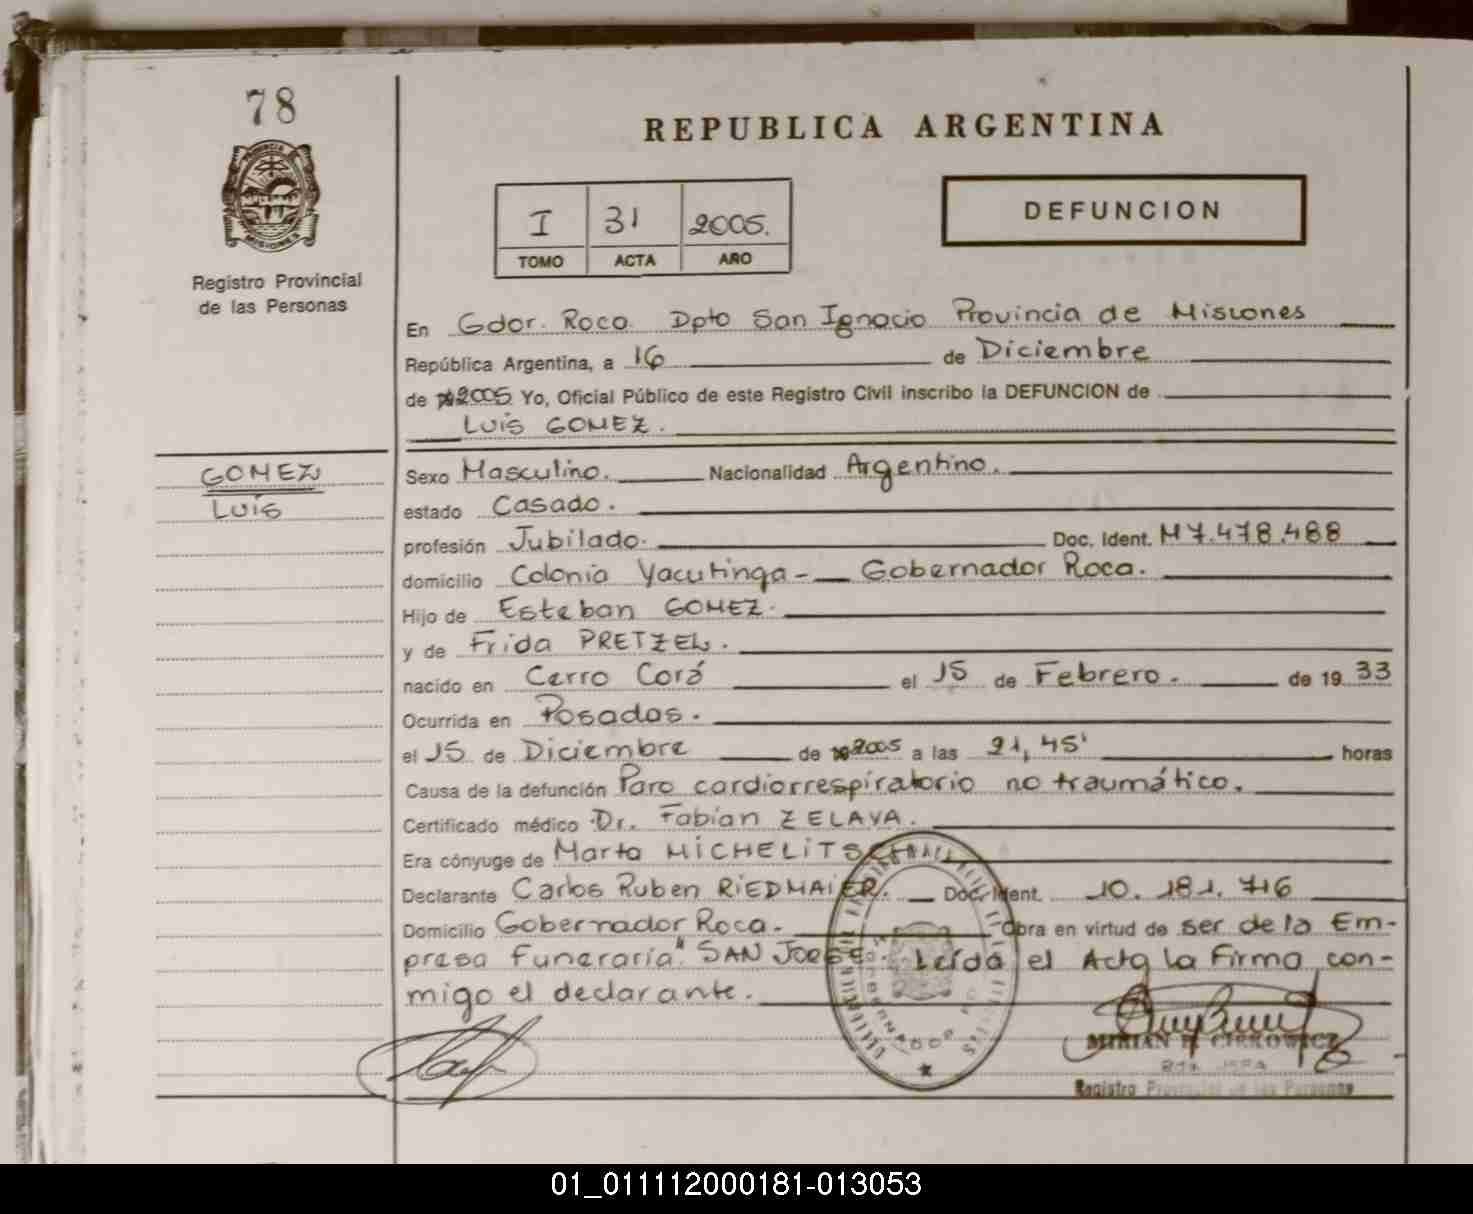 78
REPUBLICA ARGENTINA
PROVINCIA DE
MISIONES
I 31 2005.
TOMO ACTA AÑO
DEFUNCION
Registro Provincial
de las Personas
En Gdor. Roca. Dpto San Ignacio Provincia de Misiones
República Argentina, a 16 de Diciembre
de 2005 Yo, Oficial Público de este Registro Civil inscribo la DEFUNCION de
LUIS GOMEZ.
GOMEZ
LUIS
Sexo Masculino. Nacionalidad Argentino.
estado Casado.
profesión Jubilado. Doc. Ident. M 7.478.488
domicilio Colonia Yacutinga - Gobernador Roca.
Hijo de Esteban GOMEZ.
y de Frida PRETZEL.
nacido en Cerro Corá el 15 de Febrero. de 19 33
Ocurrida en Posadas.
el 15 de Diciembre de 2005 a las 21,45' horas
Causa de la defunción Paro cardiorrespiratorio no traumático.
Certificado médico Dr. Fabian ZELAYA.
Era cónyuge de Marta MICHELITSCH
Declarante Carlos Ruben RIEDMAIER. Doc. Ident. 10.181.716
Domicilio Gobernador Roca. Obra en virtud de ser de la Em-
presa Funeraria "SAN JORGE. Leída el Acta la Firma con-
migo el declarante.
GOBERNADOR ROCA
MIRIAN CIRKOWICZ
Registro Provincial de las Personas
01_011112000181-013053